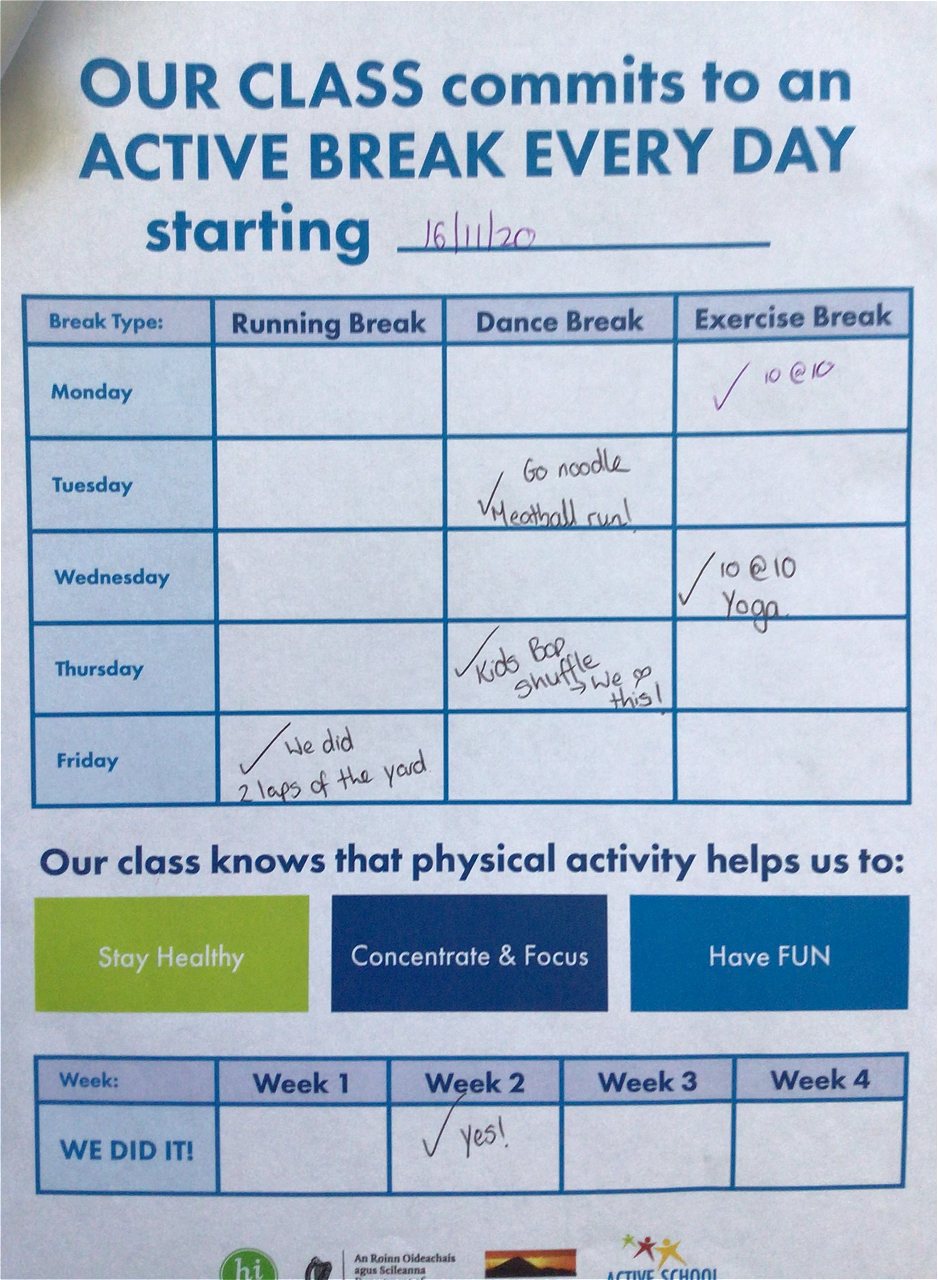 OUR CLASS commits to an
ACTIVE BREAK EVERY DAY
starting 16/11/20
Break Type: Running Break Dance Break Exercise Break
Monday ✓ 10 @ 10
Tuesday Go noodle
✓ Meatball run!
Wednesday ✓ 10 @ 10
Yoga.
Thursday ✓ Kids Bop
shuffle
→ We ∞
this!
Friday ✓ We did
2 laps of the yard
Our class knows that physical activity helps us to:
Stay Healthy Concentrate & Focus Have FUN
Week: Week 1 Week 2 Week 3 Week 4
WE DID IT! ✓ yes!
hi
An Roinn Oideachais
agus Scileanna
ACTIVE SCHOOL